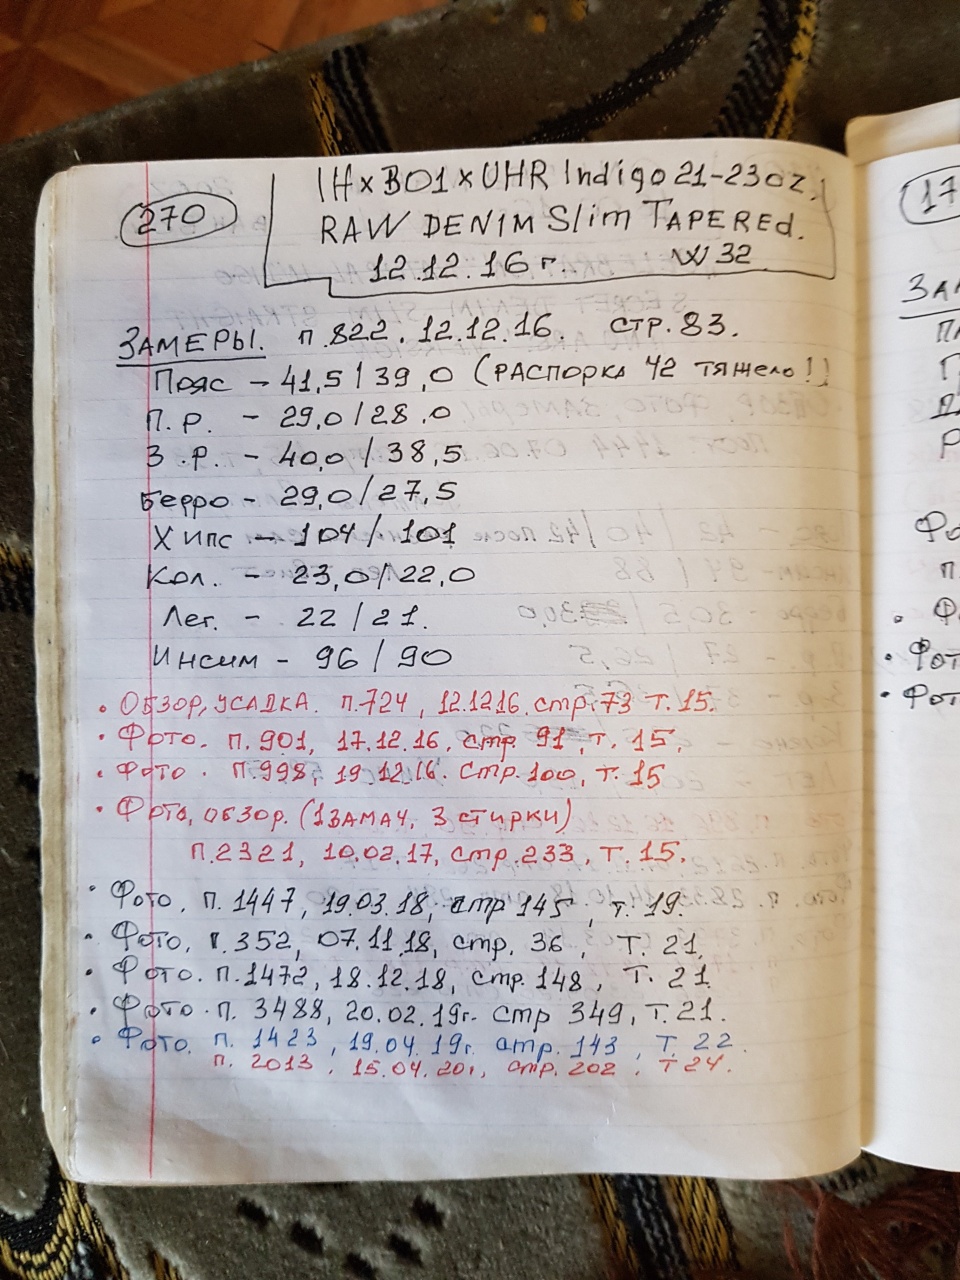 270
IH x BO1 x UHR Indigo 21-23oz.
RAW DENIM Slim TAPERED.
12.12.16 г. W 32
ЗАМЕРЫ. п.822. 12.12.16. стр.83.
Пояс - 41,5 / 39,0 (РАСПОРКА 42 тяжело!)
П.Р. - 29,0 / 28,0
З.Р. - 40,0 / 38,5
Бедро - 29,0 / 27,5
Хипс - 104 / 101
Кол. - 23,0 / 22,0
Лег. - 22 / 21.
Инсим - 96 / 90
• Обзор, УСАДКА. п.724, 12.12.16. стр.73 Т.15.
• Фото. п.901, 17.12.16, стр. 91, Т.15,
• Фото. п.998, 19.12.16. стр.100, Т.15
• Фото, обзор. (1 замач, 3 стирки)
п.2321, 10.02.17, стр.233, Т.15.
• Фото. п.1447, 19.03.18, стр 145, т.19.
• Фото, п.352, 07.11.18, стр. 36, Т.21,
• Фото. п.1472, 18.12.18, стр.148, Т.21
• Фото. п. 3488, 20.02.19г. стр 349, Т.21.
• Фото. п. 1423, 19.04.19г. стр. 143, Т.22.
п. 2013, 15.04.20г, стр. 202, Т 24.
17
ЗА
П
Г
Р
Фо
п.
• Ф
• Фот
• Фот